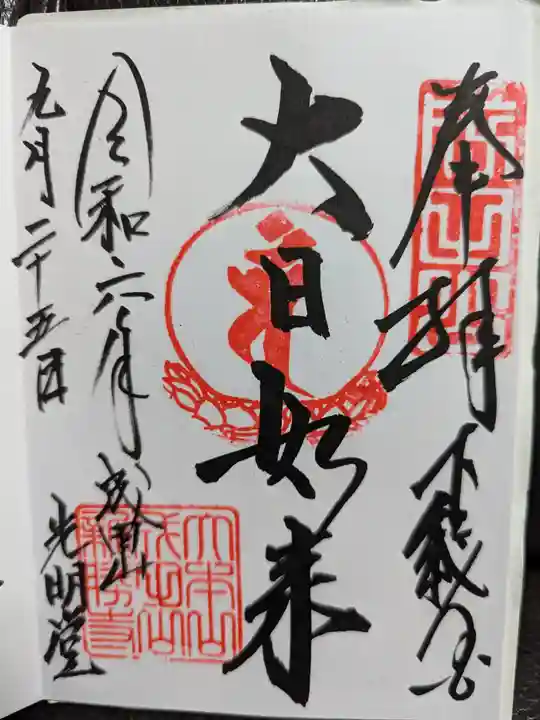 奉拝
大日如来
令和六年
九月二十五日
成田山
光明堂
成田山
大本山
成田山
新勝寺